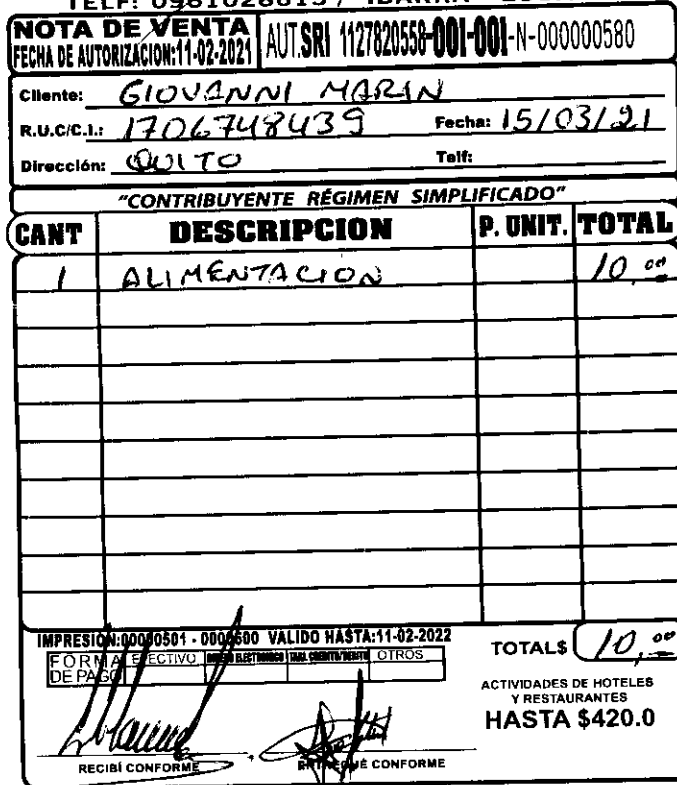 NOTA DE VENTA
FECHA DE AUTORIZACION:11-02-2021
AUT.SRI 1127820558-001-001-N-000000580
Cliente: GIOVANNI MARIN
R.U.C/C.I.: 1706748439 Fecha: 15/03/21
Dirección: QUITO Telf:
"CONTRIBUYENTE RÉGIMEN SIMPLIFICADO"
CANT DESCRIPCION P. UNIT. TOTAL
1 ALIMENTACION 10,00
IMPRESIÓN:00000501 - 00000600 VALIDO HASTA:11-02-2022
FORMA DE PAGO EFECTIVO DINERO ELECTRONICO TARJ. CREDITO/DEBITO OTROS
TOTAL$ 10,00
ACTIVIDADES DE HOTELES
Y RESTAURANTES
HASTA $420.0
RECIBÍ CONFORME ENTREGUÉ CONFORME